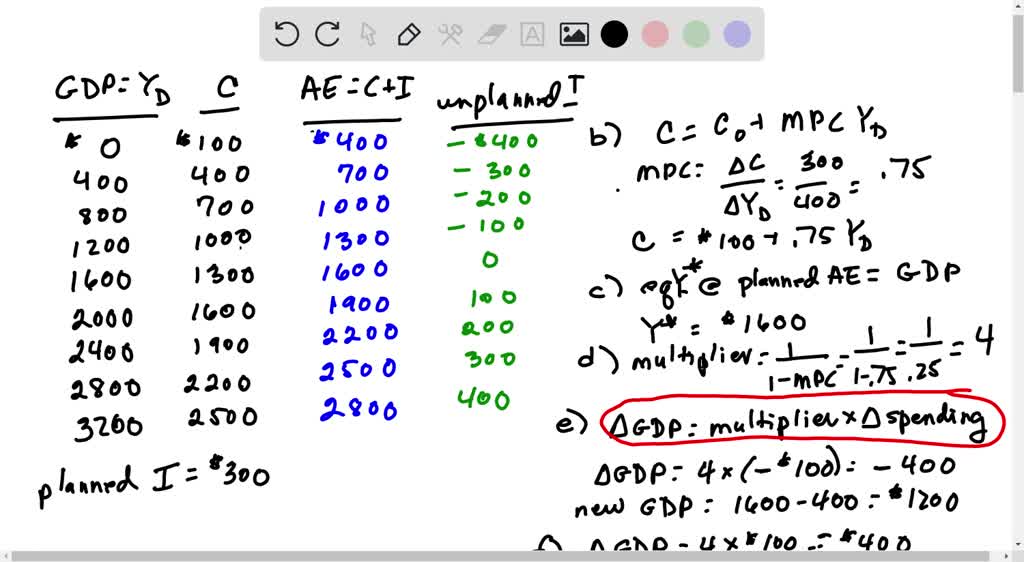 GDP=Y_D C AE=C+I unplanned I
$ 0 $100 $400 -$400
400 400 700 -300
800 700 1000 -200
1200 1000 1300 -100
1600 1300 1600 0
2000 1600 1900 100
2400 1900 2200 200
2800 2200 2500 300
3200 2500 2800 400
planned I = $300
b) C = C_0 + MPC Y_D
MPC = ΔC/ΔY_D = 300/400 = .75
C = $100 + .75 Y_D
c) eq Y* @ planned AE = GDP
Y* = $1600
d) multiplier = 1/1-MPC = 1/1-.75 = 1/.25 = 4
e) ΔGDP = multiplier x Δ spending
ΔGDP = 4 x (-$100) = -400
new GDP = 1600-400 = $1200
f) ΔGDP = 4 x $100 = $400